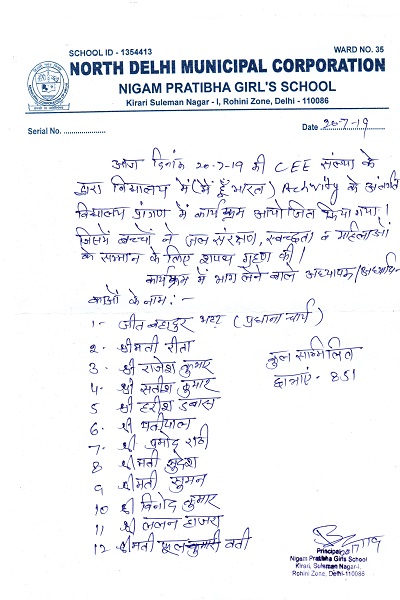 SCHOOL ID - 1354413 WARD NO. 35
NORTH DELHI MUNICIPAL CORPORATION
NIGAM PRATIBHA GIRL'S SCHOOL
Kirari Suleman Nagar - I, Rohini Zone, Delhi - 110086
Serial No. ..................... Date 20-7-19
आज दिनांक 20-7-19 को CEE संस्था के
द्वारा विद्यालय में (मैं हूँ भारत) Activity के अंतर्गत
विद्यालय प्रांगण में कार्यक्रम आयोजित किया गया।
जिसमें बच्चों ने जल संरक्षण, स्वच्छता व महिलाओं
के सम्मान के लिए शपथ ग्रहण की।
कार्यक्रम में भाग लेने वाले अध्यापक/अध्यापि-
काओं के नाम:-
1- जीत बहादुर भट्ट (प्रधानाचार्य)
2- श्रीमती रीता
3- श्री राजेश कुमार
4- श्री सतीश कुमार
5 श्री हरीश डबास
6- श्री यतीपाल
7- श्री प्रमोद राठी
8 श्रीमती सुदेश
9 श्रीमती सुमन
10 श्री विनोद कुमार
11 श्री ललन हाजरा
12- श्रीमती फूल कुमारी
कुल सम्मिलित
छात्राएं - 851
Principal
Nigam Pratibha Girls School
Kirari, Suleman Nagar-I,
Rohini Zone, Delhi-110086